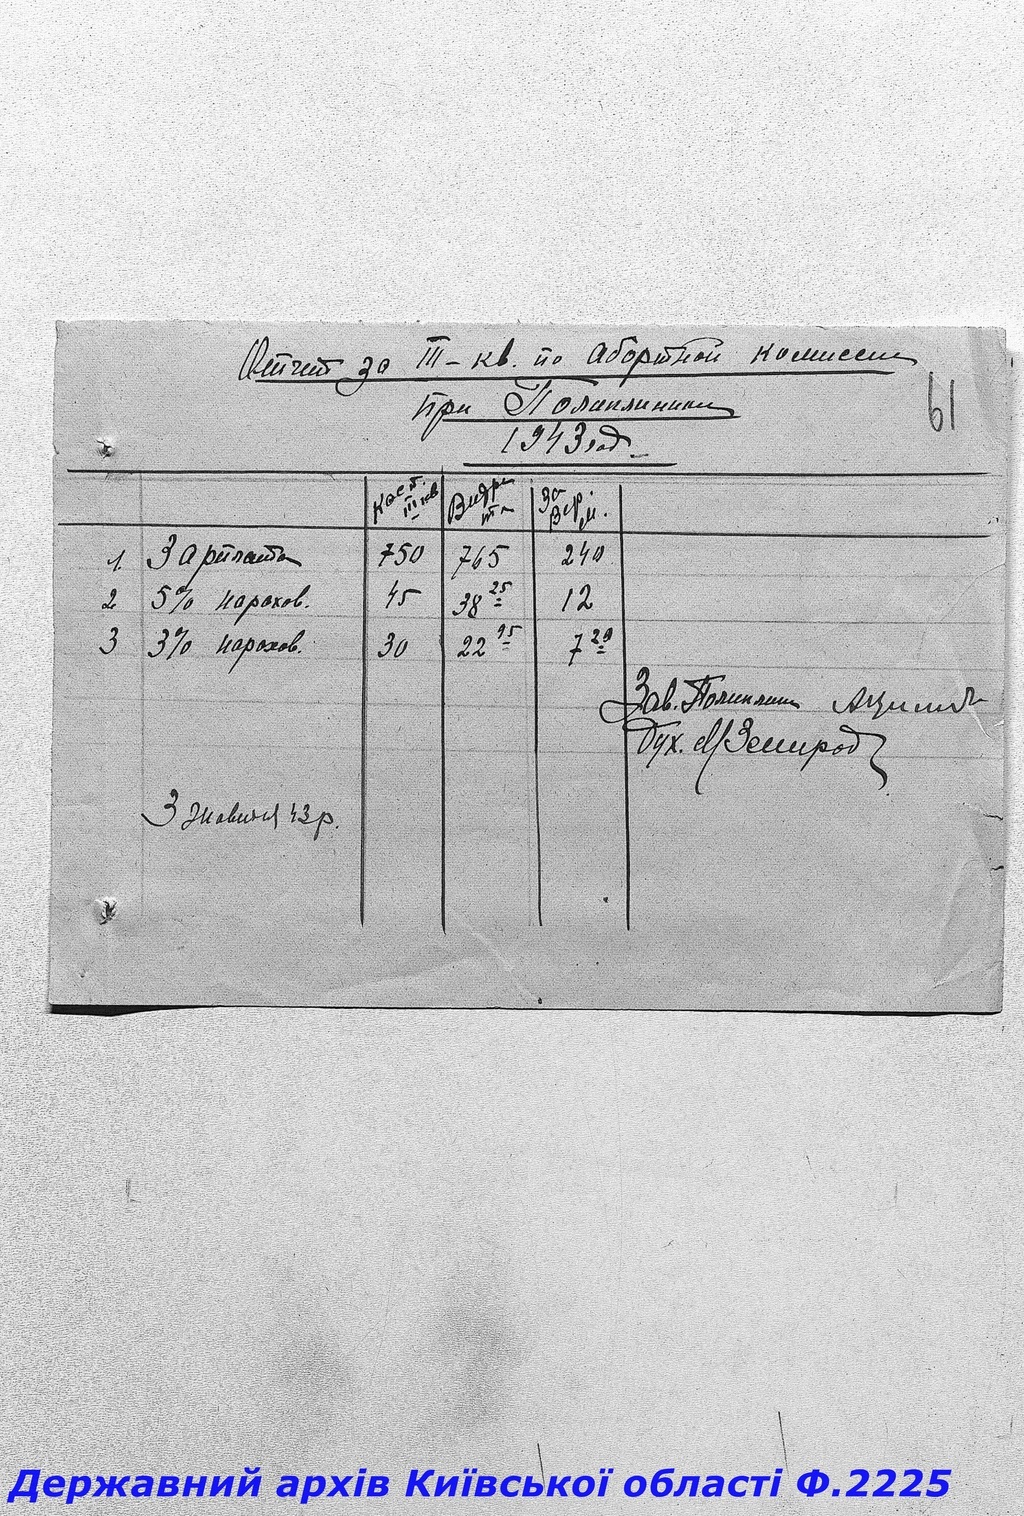 Отчет за III-кв. по абортной комиссии
при Поликлиники
1943 год.
61
Кост. III кв Видри За Вер. м.
1. Зарплата 750 765 240
2 5% нарохов. 45 38 25 12
3 3% нарохов. 30 22 95 7 20
Зав. Поликлин
Бух.
3 жовтня 43 р.
Державний архів Київської області Ф.2225